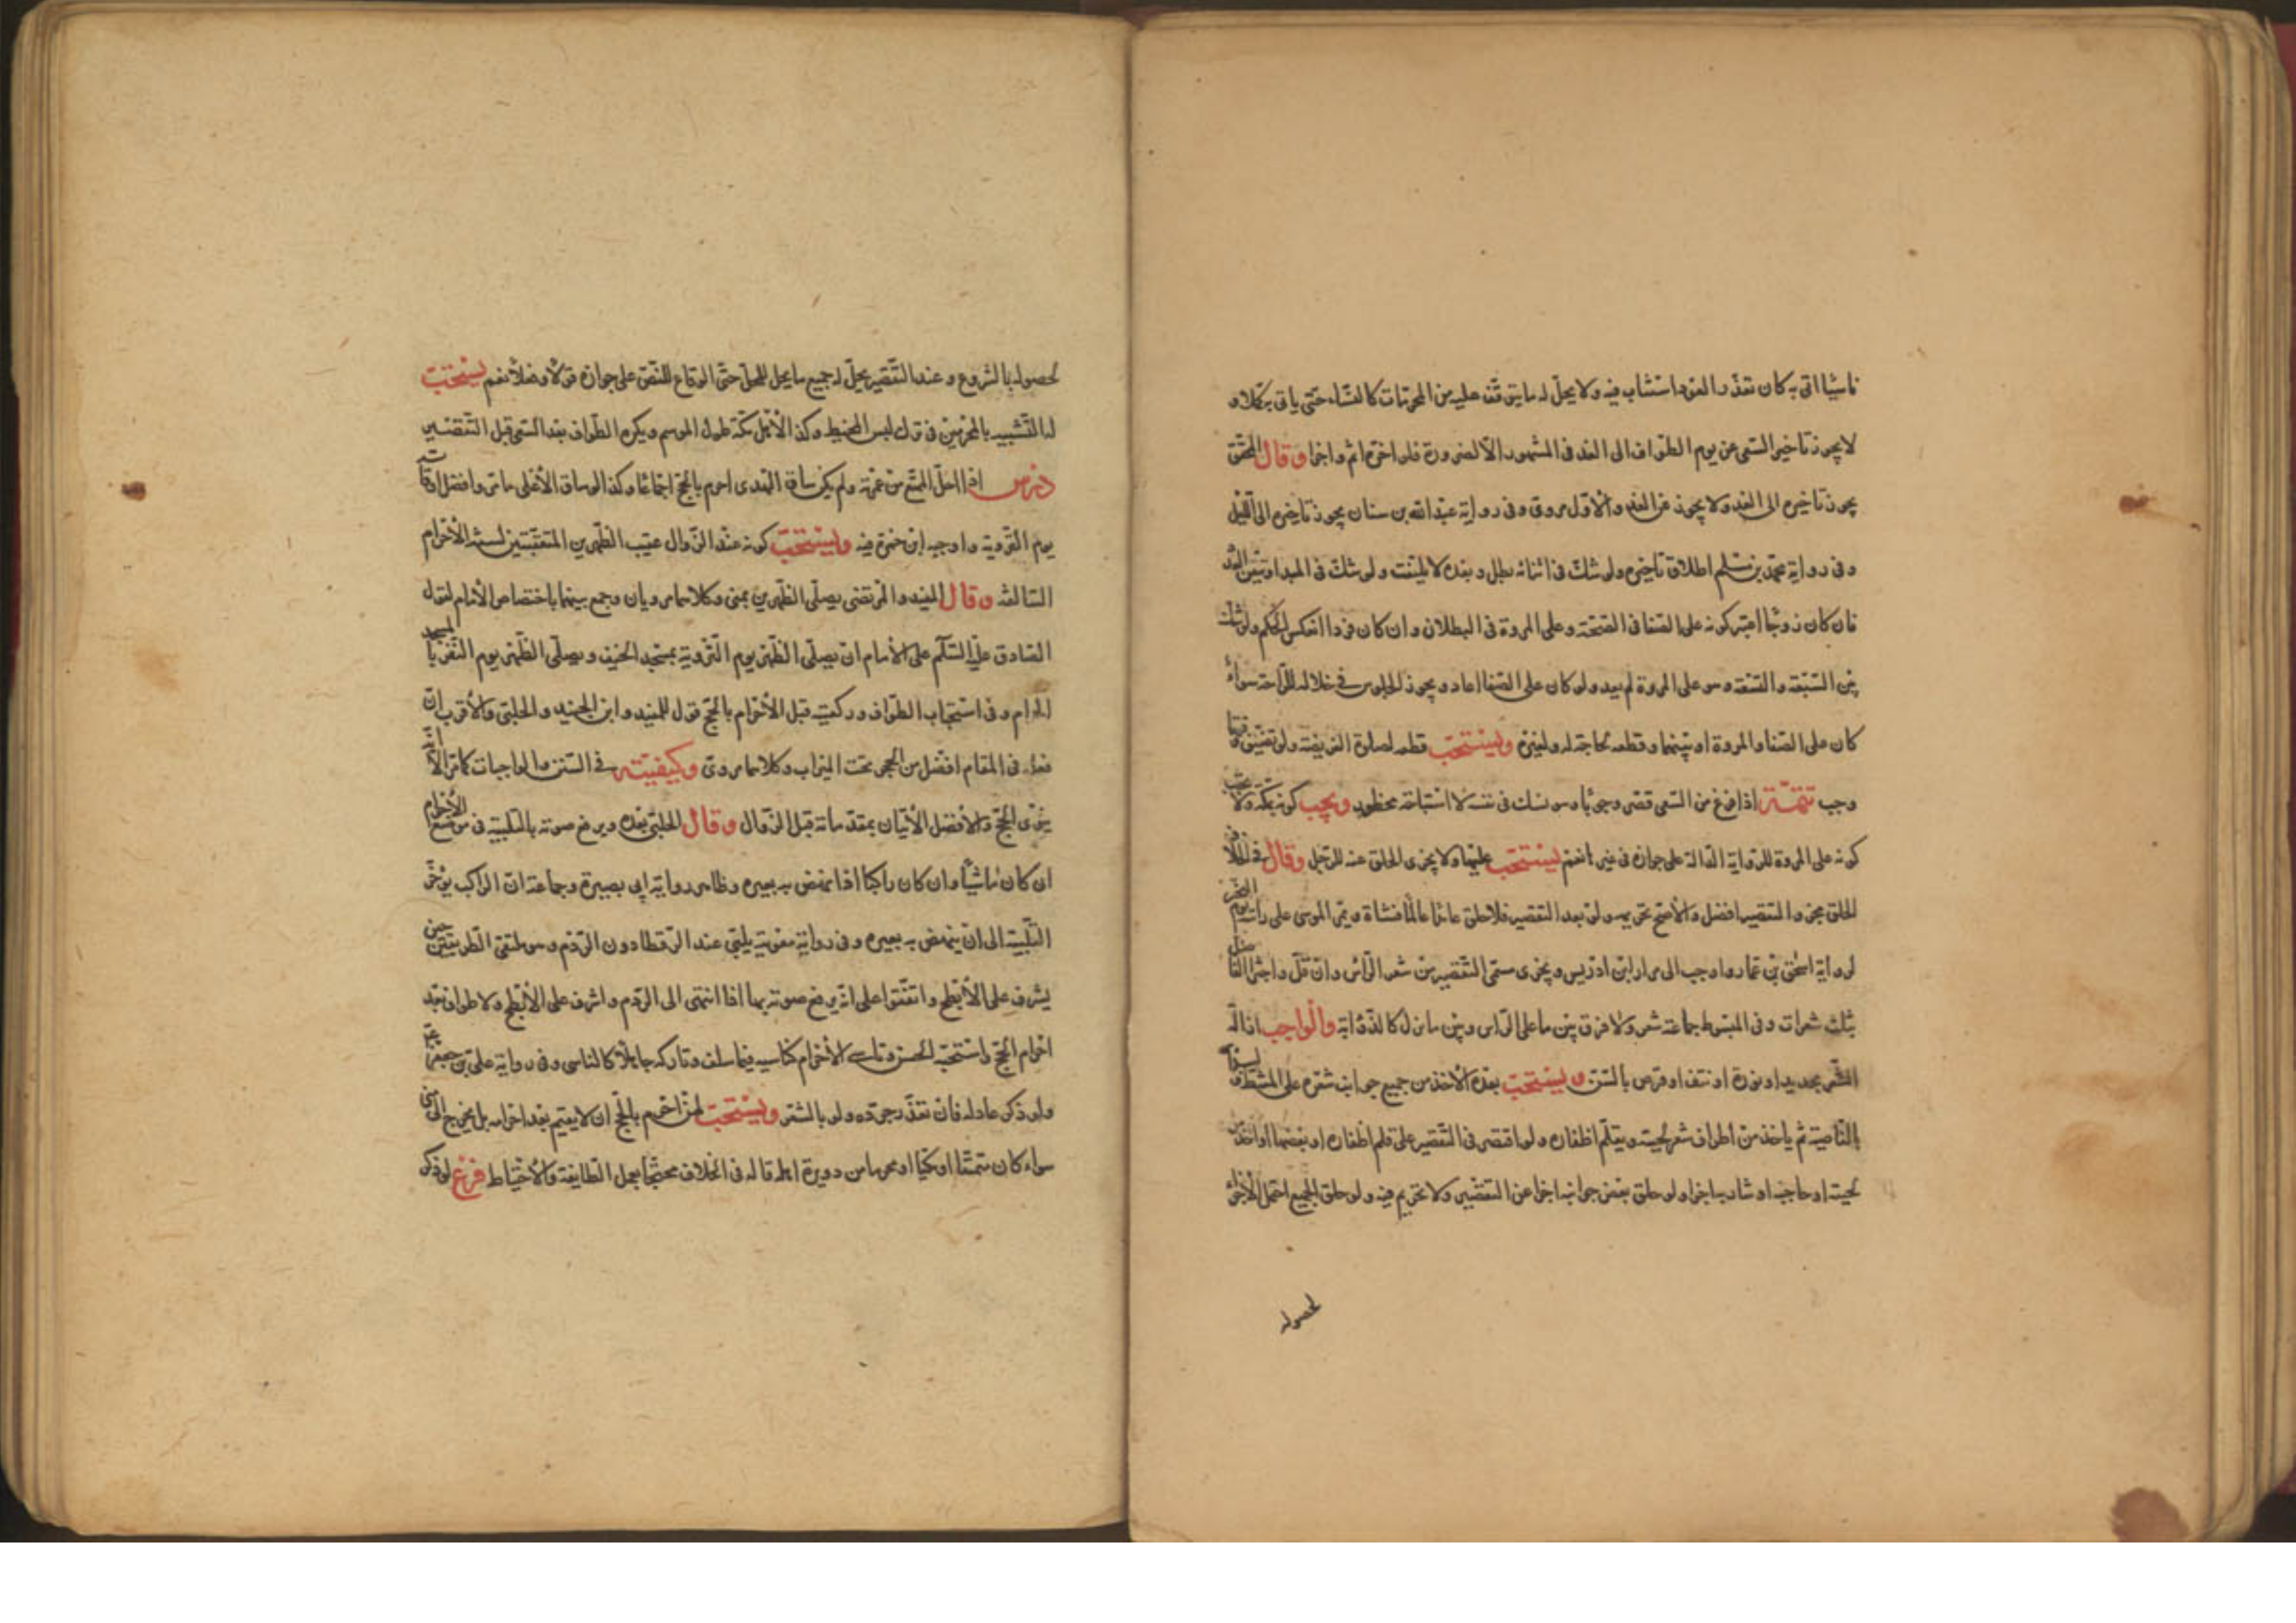 ناسيا اتى به كان تعذر العود استناب فيه ولا يحل له ما يتوقف عليه من المحرمات كالنساء حتى ياتى به كملا و
لا يجوز تاخير السعى عن يوم الطواف الى الغد فى المشهور الا لضرورة فلو اخره اثم واجزا وقال المحقق
يجوز تاخيره الى الغد ولا يجوز عن الغد والاول مروى وفى رواية عبد الله بن سنان يجوز تاخيره الى الليل
وفى رواية محمد بن مسلم اطلاق تاخيره ولو شك فى اثنائه بطل وبعده لا يلتفت ولو شك فى المبدا وتيقن العدد
فان كان زوجا اعتبر كونه على الصفا فى الصحة وعلى المروة فى البطلان وان كان فردا انعكس الحكم ولو شك
بين السبعة والتسعة وهو على المروة لم يعد ولو كان على الصفا اعاد ويجوز الجلوس فى خلاله للراحة سواء
كان على الصفا والمروة او بينهما وقطعه لحاجة له ولغيره ويستحب قطعه لصلوة الفريضة ولو تضيق وقتها
وجب تتمة اذا فرغ من السعى قصر وجوبا وهو نسك فى نفسه لا استباحة محظور ويجب كونه بمكة ولا يجب
كونه على المروة للرواية الدالة على جوازه فى غيرها نعم يستحب عليها ولا يجزى الحلق عنه للرجل وقال فى الخلاف
الحلق مجز والتقصير افضل والاصح تحريمه ولو بعد التقصير فلو حلق عامدا عالما فشاة ويمر الموسى على راسه يوم النحر
لرواية اسحق بن عمار واوجب المرار ابن ادريس ويجزى مسمى التقصير من شعر الراس وان قل واجتزا الفاضل
بثلث شعرات وفى المبسوط جماعة شعر ولا فرق بين ما على الراس وبين ما نزل كالذؤابة والواجب ازالة
الشعر بحديد او نورة او نتف او قرض بالسن ويستحب بعده الاخذ من جميع جوانب شعره على المشط وليبدأ
بالناصية ثم ياخذ من اطراف شعر لحيته ويقلم اظفاره ولو اقتصر فى التقصير على قلم اظفاره او بعضها او اخذ من
لحيته او حاجبه او شاربه اجزا ولو حلق بعض جوانبه اجزا عن التقصير ولا تحريم فيه ولو حلق الجميع احتمل الاجزاء
لحصوله
لحصوله بالشروع وعند التقصير يحل له جميع ما يحل للمحل حتى الوقاع للنص على جوازه قولا وفعلا نعم يستحب
له التشبيه بالمحرمين فى ترك لبس المخيط وكذا لاهل مكة طول الموسم ويكره الطواف بعد السعى قبل التقصير
درس اذا احل المتمتع من عمرته ولم يكن ساق الهدى احرم بالحج اجماعا وكذا لو ساق الاعلى ما مر وافضل اوقاته
يوم التروية واوجبه ابن حمزة فيه ويستحب كونه عند الزوال عقيب الظهرين المتعقبتين لسنة الاحرام
السالفة وقال المفيد والمرتضى يصلى الظهرين بمنى وكلاهما مرويان وجمع بينهما باختصاص الامام لقول
الصادق عليه السلام على الامام ان يصلى الظهر يوم التروية بمسجد الخيف ويصلى الظهر يوم النفر بالمسجد
الحرام وفى استحباب الطواف وركعتيه قبل الاحرام بالحج قول للمفيد وابن الجنيد والحلبى والاقرب ان
فعله فى المقام افضل من الحجر تحت الميزاب وكلاهما مروى وكيفيته فى السنن والواجبات كما مر الا انه
ينوى الحج والافضل الاتيان بمقدماته قبل الزوال وقال الحلبى بعده ويرفع صوته بالتلبية فى موضع الاحرام
ان كان ماشيا وان كان راكبا اذا نهض به بعيره وظاهر رواية ابى بصيرة وجماعة ان الراكب يؤخر
التلبية الى ان ينهض به بعيره وفى رواية معوية يلبى عند الرقطا دون الردم وهو ملتقى الطريقين حين
يشرف على الابطح واتفقوا على انه يرفع صوته بها اذا انتهى الى الردم واشرف على الابطح ولا طواف بعد
احرام الحج واستحبه الحسن وناسى الاحرام كناسيه فيما سلف وتاركه جاهلا كالناسى وفى رواية على بن جعفر
ولو ذكر عاد له فان تعذر جدده ولو بالمشعر ويستحب لمن احرم بالحج ان لا يقيم بعد احرامه بل يخرج الى منى
سواء كان متمتعا او مكيا او محرما من دويرة اهله قاله فى الخلاف محتجا بعمل الطايفة والاحتياط فرع لو ذكر